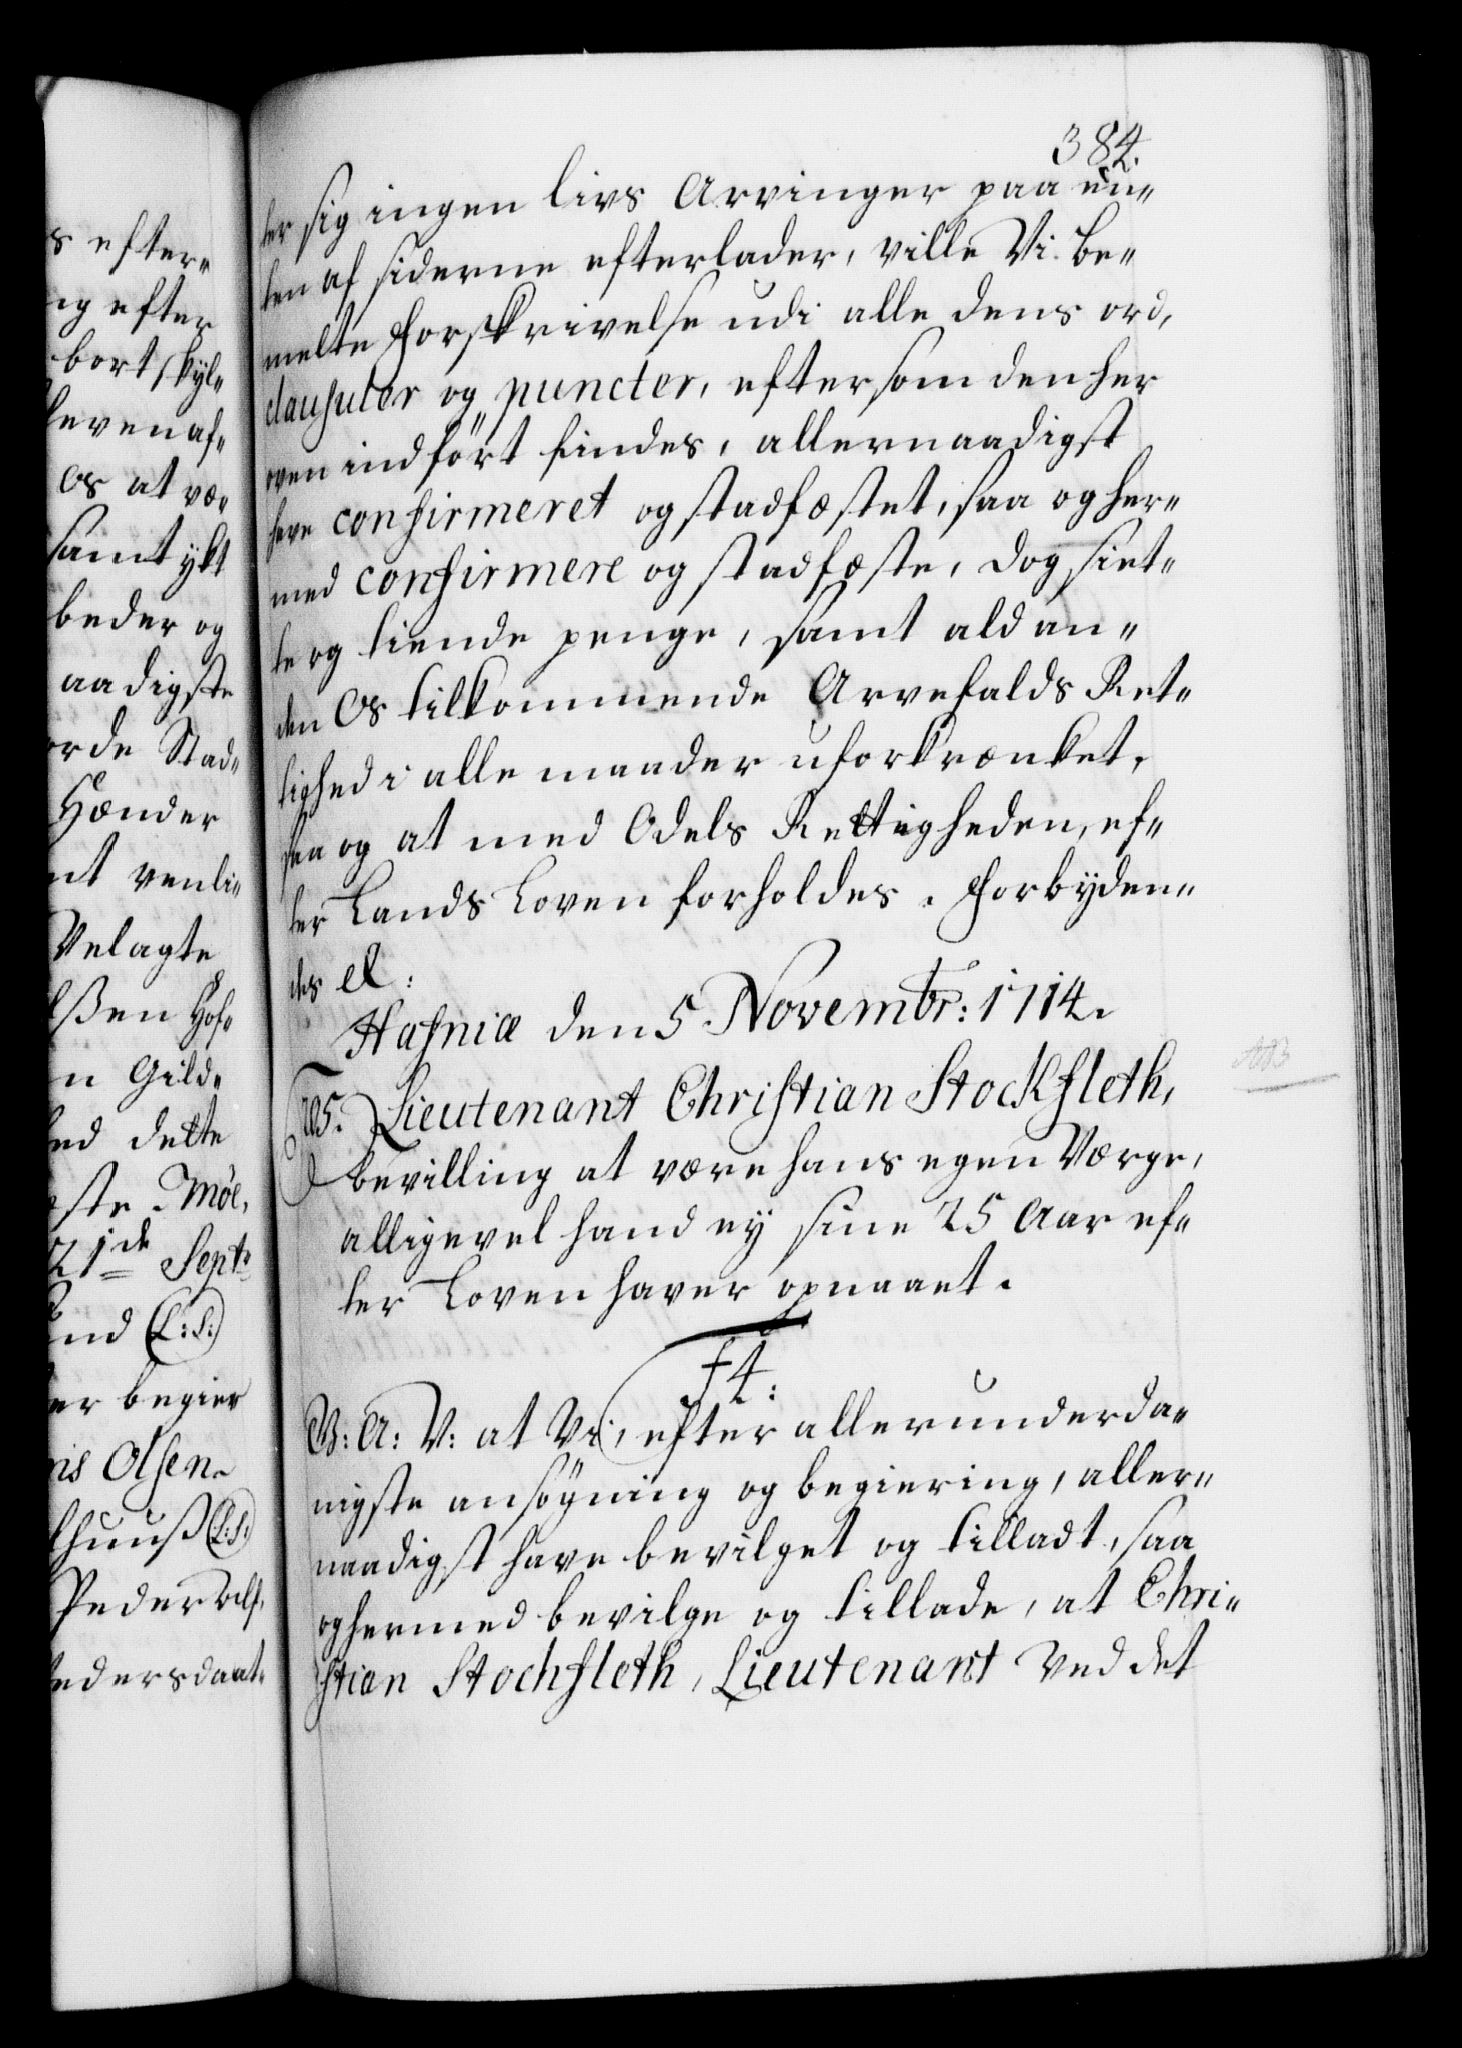 384.
ter sig ingen livs Arvinger paa en„
ten af siderne efterlader, ville Vi be„
melte Forskrivelse udi alle dens ord,
clausuler og puncter, eftersom den her
oven indført findes, allernaadigst
have confirmeret og stadfæstet, saa og her„
med confirmere og stadfæste, dog siet„
te og tiende penge, samt ald an„
den Os tilkommende Arvefalds Ret„
tighed i alle maader uforkrænket,
saa og at med Odels Rettigheden, ef„
ter Lands Loven forholdes. Forbyden„
des etc:
Hafniæ den 5 Novembr: 1714.
Lieutenant Christian Stockfleth,
bevilling at være hans egen Værge,
alligevel hand ey sine 25 Aar ef„
ter Loven haver opnaaet.
F4:
G: A: V: at Vi, efter allerunderda„
nigste ansøgning og begiering, aller„
naadigst have bevilget og tilladt, saa
og hermed bevilge og tillade, at Chri„
stian Stochfleth, Lieutenant ved det
s efter„
ig efter
bort skyl„
leven af„
Os at væ„
samtykt
beder og
aadigste
orde Stad„
Hænder
nt venli„
Velagte
lßen Hof„
n Gild„
ed dette
ste Møe,
21de Septr
ind (L:S:)
er begier
nis Olsen.
lhuuß (L:S:)
Peder Olf,
edersdaat„